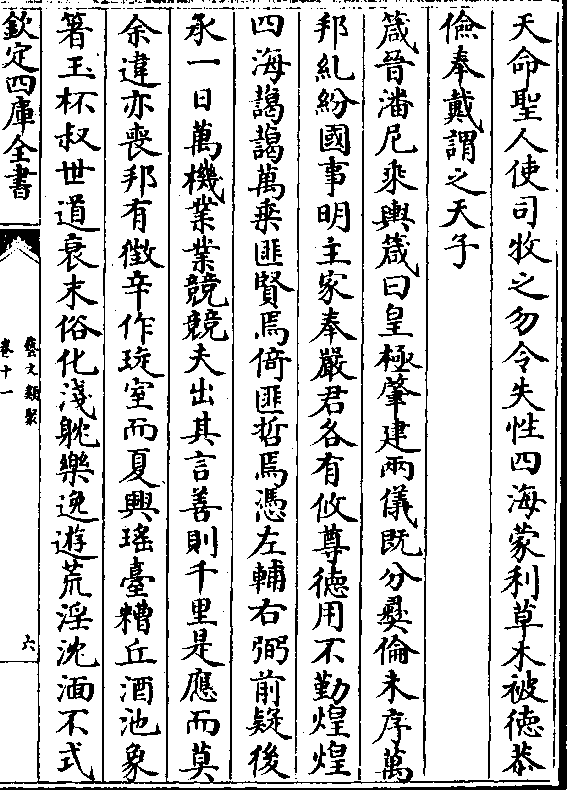 天命聖人使司牧之勿令失性四海蒙利草木被德恭
儉奉戴謂之天子
箴晉潘尼乘輿箴曰皇極肇建兩儀既分彛倫未序萬
邦乣紛國事明主家奉嚴君各有攸尊德用不勤煌煌
四海藹藹萬乘匪賢焉倚匪哲焉憑左輔右弼前疑後
承一日萬機業業競競夫出其言善則千里是應而莫
余違亦喪邦有徵辛作琁室而夏興瑤臺糟丘酒池象
箸玉杯叔世道衰末俗化淺躭樂逸遊荒淫沈湎不式
欽定四庫全書
藝文類聚
卷十一
六